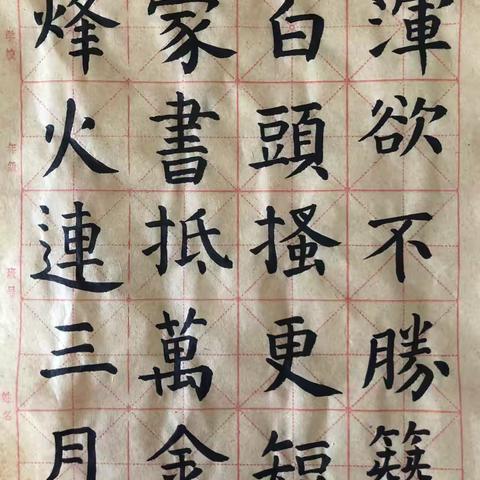 烽火連三月
家書抵萬金
白頭搔更短
渾欲不勝簪
学校
年级
班号
姓名